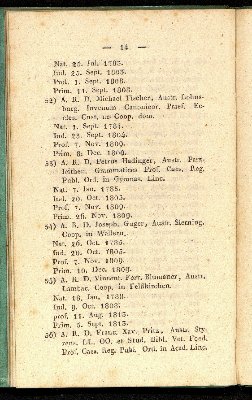 — 14 —
Nat. 25. Jul. 1783.
Ind. 25. Sept. 1803.
Prof. 1. Sept. 1808.
Prim. 11. Sept. 1808.
52) A. R. D. Michael Fischer, Austr.
burg. Canonicor. Praef.
Cast. us Coop. dom.
Nat. 1. Sept. 1784.
Ind. 22. Sept. 1804.
Prof. 7. Nov. 1809.
Prim. 8. Dec. 1809.
53) A. R. D. Petrus Austr.
Grammatices Prof. Caes. Reg.
Publ. Ord. in Gymnas. Linc.
Nat. 7. Jan. 1785.
Ind. 20. Oct. 1805.
Prof. 7. Nov. 1809.
Prim. 26. Nov. 1809.
54) A. R. D. Joseph. Guger, Austr. Sierning.
Coop. in
Nat. 26. Oct. 1785.
Ind. 20. Oct. 1805.
Prof. 7. Nov. 1809.
Prim. 10. Dec. 1809.
55) A. R. D. Vincent. Fer. Blumauer, Austr.
Lambac. Coop. in Feldkirchen.
Nat. 18. Jan. 1788.
Ind. 9. Oct. 1808.
prof. 11. Aug. 1813.
Prim. 5. Sept. 1813.
56) A. R. D. Franc. Xav. Austr.
LL. OO. et Stud. Bibl. Vet. Foed.
Prof. Caes. Reg. Publ. Ord. in Acad. Linc.